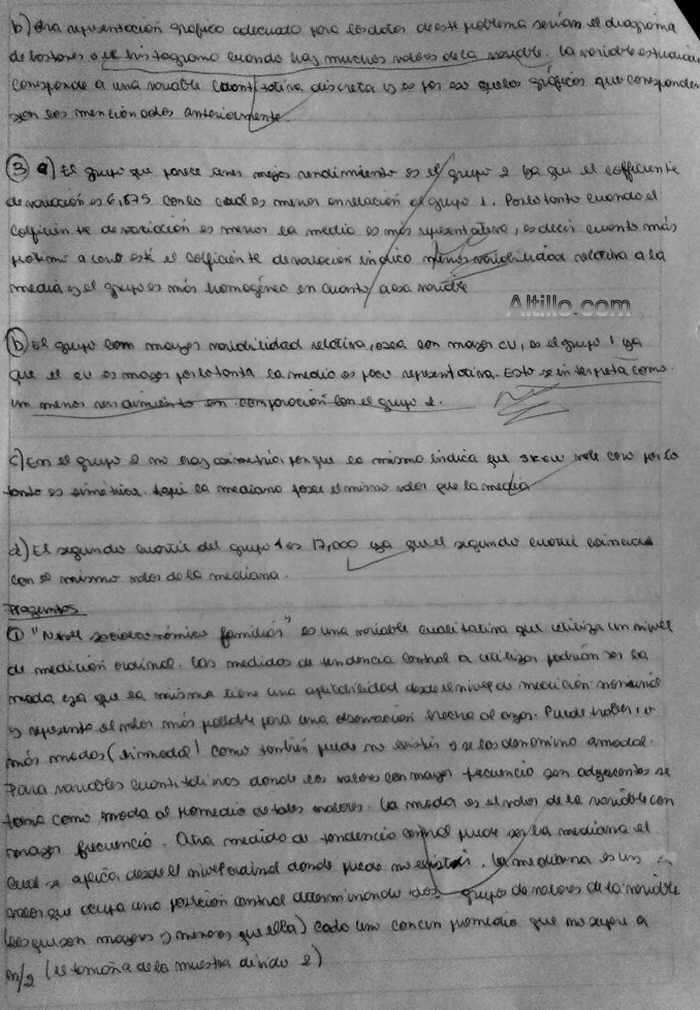 b) Otra representación gráfica adecuada para los datos de este problema serían el diagrama
de bastones o el histograma cuando hay muchos valores de la variable. La variable estudiada
corresponde a una variable cuantitativa discreta y es por eso que los gráficos que corresponden
son los mencionados anteriormente.
3 a) El grupo que parece tener mejor rendimiento es el grupo 2 ya que el coeficiente
de variación es 6,875 con lo cual es menor en relación al grupo 1. Por lo tanto cuando el
coeficiente de variación es menor la media es más representativa, es decir cuanto más
próximo a cero esté el coeficiente de variación indica menos variabilidad relativa a la
media y el grupo es más homogéneo en cuanto a esa variable
Altillo.com
b) El grupo con mayor variabilidad relativa, o sea con mayor CV, es el grupo 1 ya
que el CV es mayor por lo tanto la media es poco representativa. Esto se interpreta como
un menor rendimiento en comparación con el grupo 2.
c) En el grupo 2 no hay asimetría porque la misma indica que skew vale cero por lo
tanto es simétrica. Aquí la mediana posee el mismo valor que la media
d) El segundo cuartil del grupo 1 es 17,000 ya que el segundo cuartil coincide
con el mismo valor de la mediana.
Preguntas
1 "Nivel socioeconómico familiar" es una variable cualitativa que utiliza un nivel
de medición ordinal. Las medidas de tendencia central a utilizar podrían ser la
moda ya que la misma tiene una aplicabilidad desde el nivel de medición nominal
y representa el valor más probable para una observación hecha al azar. Puede haber 1 o
más modas (bimodal) como también puede no existir y se las denomina amodal.
Para variables cuantitativas donde los valores con mayor frecuencia son adyacentes se
toma como moda al promedio de tales valores. La moda es el valor de la variable con
mayor frecuencia. Otra medida de tendencia central puede ser la mediana el
cual se aplica desde el nivel ordinal donde puede no existir. La mediana es un
valor que ocupa una posición central determinando dos grupos de valores de la variable
(los que son mayores y menores que ella) cada uno con un promedio que no supere a
n/2 (el tamaño de la muestra dividido 2)